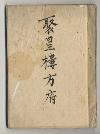 聚星樓方府